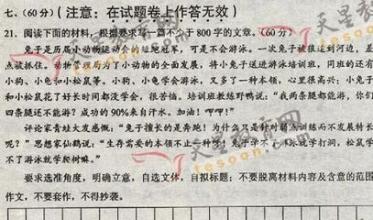 七、(60分)(注意：在试题卷上作答无效)
21. 阅读下面的材料，根据要求写一篇不少于800字的文章。(60分)
兔子是历届小动物运动会的短跑冠军，可是不会游泳。一次兔子被狼追到河边，差
点被抓住。动物管理局为了小动物的全面发展，将兔子送进游泳培训班，同班的还有
小狗、小龟和小松鼠等。小狗、小龟学会游泳，又多了一种本领，心里很高兴；小兔子
和小松鼠花了好长时间都没学会，很苦恼。培训班教练野鸭说："我两条腿都能游，你们
四条腿还不能游？成功的90%来自汗水。加油！呷呷！"
评论家青蛙大发感慨："兔子擅长的是奔跑！为什么只是针对弱点训练而不发展特长
呢？"思想家仙鹤说："生存需要的本领不止一种呀！兔子学不了游泳就学打洞，松鼠学
不了游泳就学爬树嘛。"
要求选准角度，明确立意，自选文体，自拟标题；不要脱离材料内容及含意的范围
作文，不要套作，不得抄袭。
天星教育网
tesoon.com